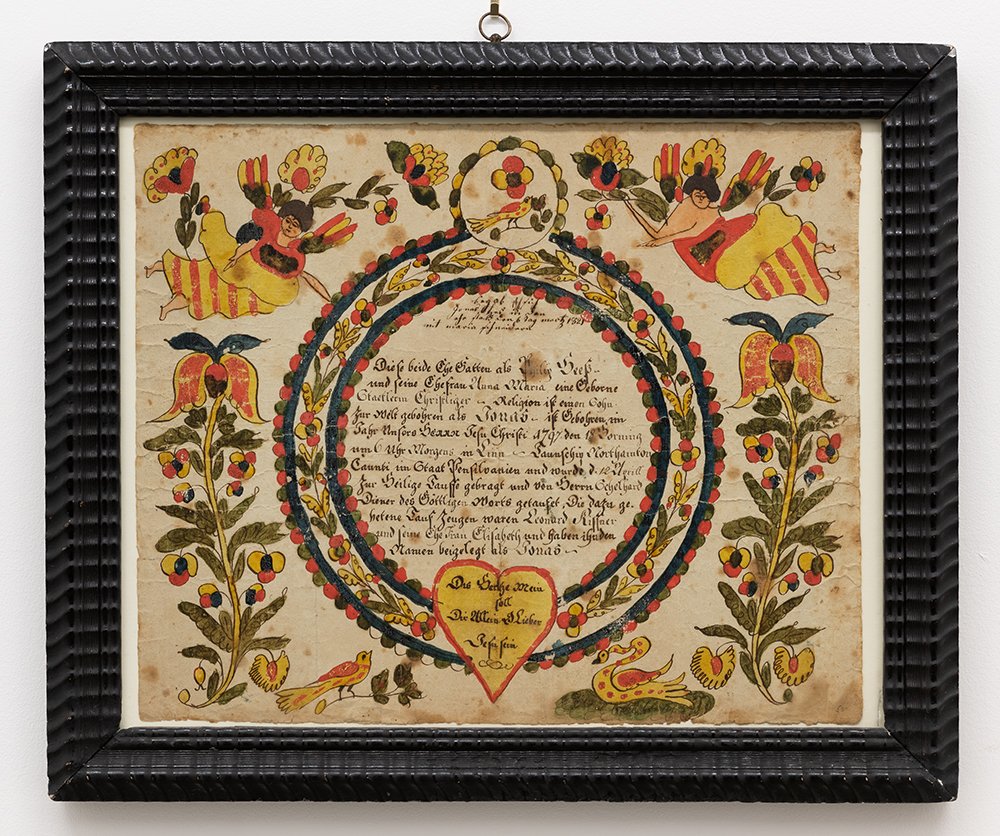 tag merz 1821
mit maria
Diese beide Ehe Gatten als Philip Heeß
und seine Ehefrau Anna Maria eine Geborne
Stattlern Christliger Religion ist einen Sohn
zur Welt gebohren als Jonas ist Gebohren im
Jahr Unsors Herrn Jesu Christi 1797 den Hornung
um 6 Uhr Morgens in Linn Taunschip Northamton
Caunti im Staat Pensilvanien und wurde d. 12 Aprill
zur Heilige Tauffe gebragt und von Herrn Schelhard
Diener des Göttligen Worts getauft. Die dazu ge,
betene Tauf Zeugen waren Leonard Kistner
und seine Ehe Frau Elisabeth und haben ihn den
Namen beigelegt als Jonas
Dis Hertze Mein
soll
Dir Allein O Lieber
Jesu sein